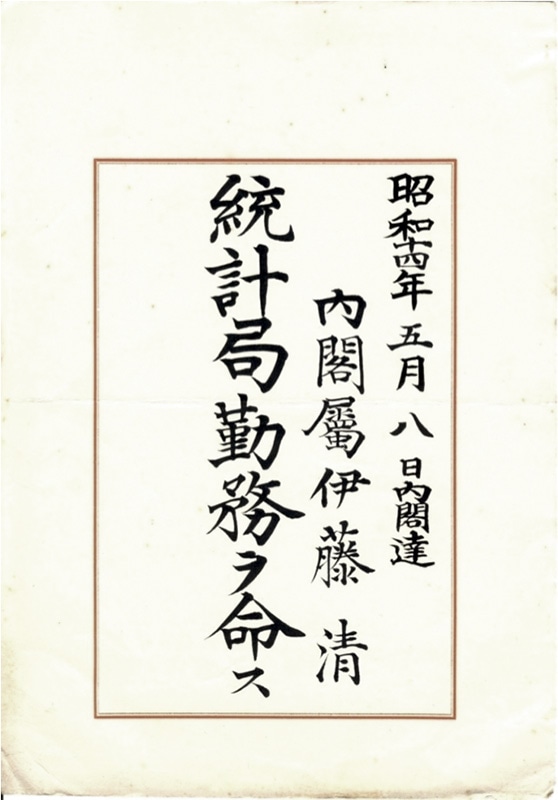 昭和十四年五月八日內閣達
內閣屬伊藤清
統計局勤務ヲ命ス